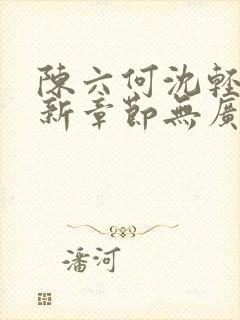 陳六何沈輕
新章節無廣
潘河